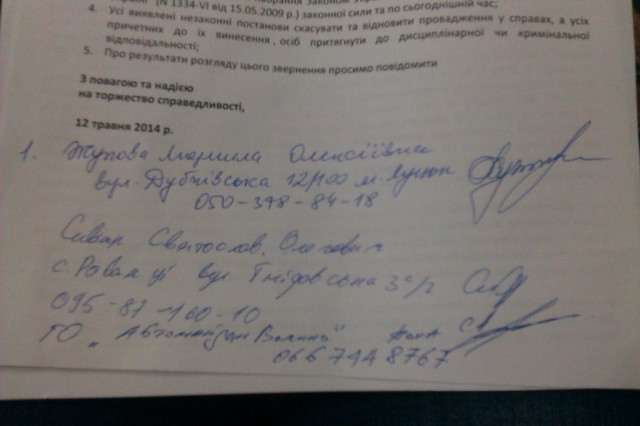 (N 1334-VI від 15.05.2009 р.) законної сили та по сьогоднішній час;
4. Усі виявлені незаконні постанови скасувати та відновити провадження у справах, а усіх
причетних до їх винесення, осіб притягнути до дисциплінарної чи кримінальної
відповідальності;
5. Про результати розгляду цього звернення просимо повідомити
З повагою та надією
на торжество справедливості,
12 травня 2014 р.
1. Жукова Людмила Олексіївна
вул. Дубнівська 12/100 м. Луцьк
050-378-84-18
Святослав Олегович
с. Рованці вул. Гнідавська
095-81-160-10
ГО "Автомайдан Волинь"
066 744 8767